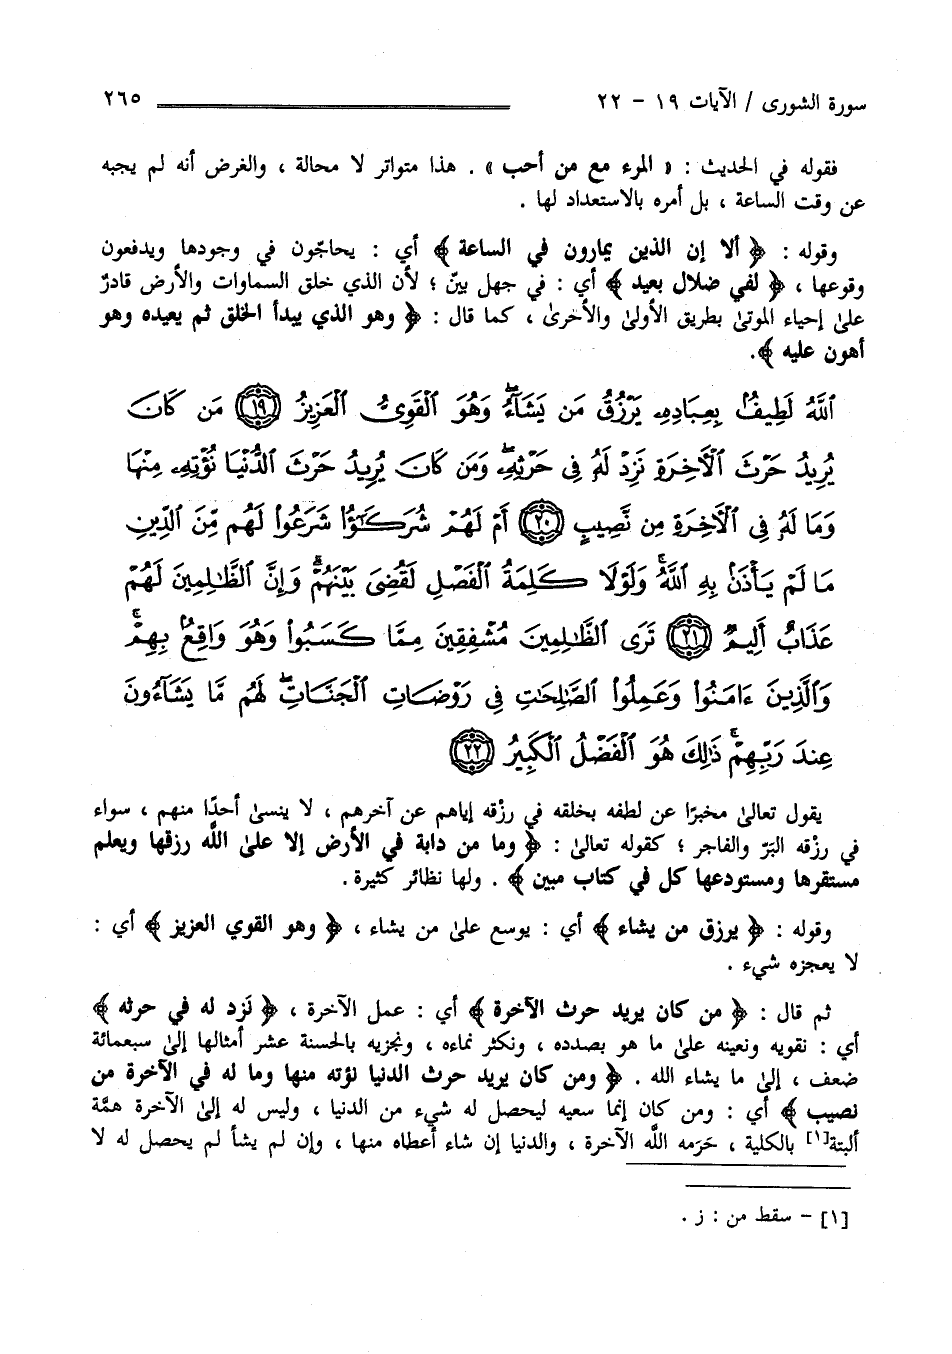 سورة الشورى / الآيات ١٩ - ٢٢ ٢٦٥
فقوله في الحديث : « المرء مع من أحب » . هذا متواتر لا محالة ، والغرض أنه لم يجبه
عن وقت الساعة ، بل أمره بالاستعداد لها .
وقوله : ﴿ ألا إن الذين يمارون في الساعة ﴾ أي : يحاجّون في وجودها ويدفعون
وقوعها ، ﴿ لفي ضلال بعيد ﴾ أي : في جهل بينّ ؛ لأن الذي خلق السماوات والأرض قادرٌ
علىٰ إحياء الموتىٰ بطريق الأولىٰ والأخرىٰ ، كما قال : ﴿ وهو الذي يبدأ الخلق ثم يعيده وهو
أهون عليه ﴾.
ٱللَّهُ لَطِيفٌۢ بِعِبَادِهِۦ يَرْزُقُ مَن يَشَآءُۖ وَهُوَ ٱلْقَوِىُّ ٱلْعَزِيزُ ﴿١٩﴾ مَن كَانَ
يُرِيدُ حَرْثَ ٱلْأَخِرَةِ نَزِدْ لَهُۥ فِى حَرْثِهِۦۖ وَمَن كَانَ يُرِيدُ حَرْثَ ٱلدُّنْيَا نُؤْتِهِۦ مِنْهَا
وَمَا لَهُۥ فِى ٱلْأَخِرَةِ مِن نَّصِيبٍ ﴿٢٠﴾ أَمْ لَهُمْ شُرَكَٰٓؤُا۟ شَرَعُوا۟ لَهُم مِّنَ ٱلدِّينِ
مَا لَمْ يَأْذَنۢ بِهِ ٱللَّهُۚ وَلَوْلَا كَلِمَةُ ٱلْفَصْلِ لَقُضِىَ بَيْنَهُمْۗ وَإِنَّ ٱلظَّٰلِمِينَ لَهُمْ
عَذَابٌ أَلِيمٌ ﴿٢١﴾ تَرَى ٱلظَّٰلِمِينَ مُشْفِقِينَ مِمَّا كَسَبُوا۟ وَهُوَ وَاقِعٌۢ بِهِمْۗ
وَٱلَّذِينَ ءَامَنُوا۟ وَعَمِلُوا۟ ٱلصَّٰلِحَٰتِ فِى رَوْضَاتِ ٱلْجَنَّاتِۖ لَهُم مَّا يَشَآءُونَ
عِندَ رَبِّهِمْۚ ذَٰلِكَ هُوَ ٱلْفَضْلُ ٱلْكَبِيرُ ﴿٢٢﴾
يقول تعالىٰ مخبرًا عن لطفه بخلقه في رزْقه إياهم عن آخرهم ، لا ينسىٰ أحدًا منهم ، سواء
في رزْقه البَرّ والفاجر ؛ كقوله تعالىٰ : ﴿ وما من دابة في الأرض إلا علىٰ اللَّه رزقها ويعلم
مستقرها ومستودعها كل في كتاب مبين ﴾ . ولها نظائر كثيرة.
وقوله : ﴿ يرزق من يشاء ﴾ أي : يوسع علىٰ من يشاء ، ﴿ وهو القوي العزيز ﴾ أي :
لا يعجزه شيء .
ثم قال : ﴿ من كان يريد حرث الآخرة ﴾ أي : عمل الآخرة ، ﴿ نَزد له في حرثه ﴾
أي : نقويه ونعينه علىٰ ما هو بصدده ، ونكثر نماءه ، ونجزيه بالحسنة عشر أمثالها إلىٰ سبعمائة
ضعف ، إلىٰ ما يشاء الله . ﴿ ومن كان يريد حرث الدنيا نؤته منها وما له في الآخرة من
نصيب ﴾ أي : ومن كان إنما سعيه ليحصل له شيء من الدنيا ، وليس له إلىٰ الآخرة همَّة
ألبتة[١] بالكلية ، حَرَمه اللَّه الآخرة ، والدنيا إن شاء أعطاه منها ، وإن لم يشأ لم يحصل له لا
[١] - سقط من : ز .